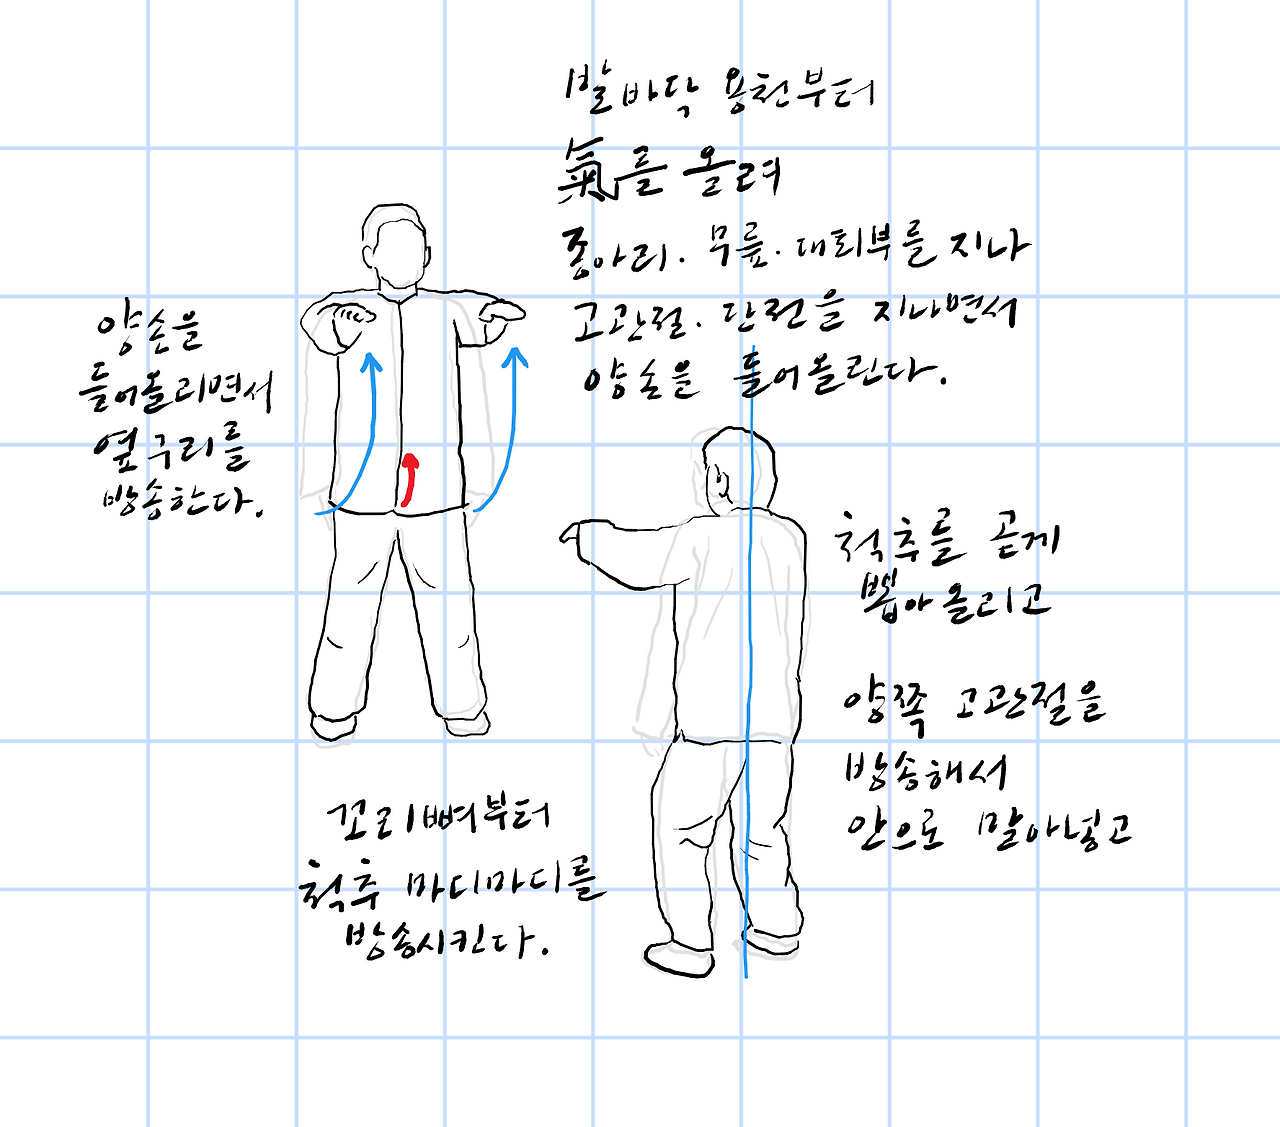 발바닥 용천부터
氣를 올려
종아리. 무릎. 대퇴부를 지나
고관절. 단전을 지나면서
양손을 들어올린다.
양손을
들어올리면서
옆구리를
방송한다.
척추를 곧게
뽑아올리고
양쪽 고관절을
방송해서
안으로 말아넣고
꼬리뼈부터
척추 마디마디를
방송시킨다.